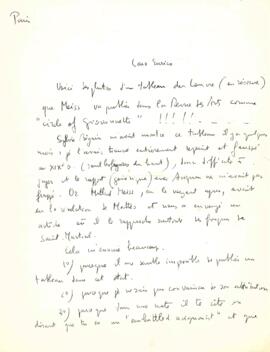 Paris
Caro Enrico
Voici des photos d'un tableau du Louvre (en réserve)
que Meiss va publier dans la Revue des Arts comme
"circle of Giovannetti" !!!!!
Sylvie Béguin m'avait montré ce tableau il y a quelques
mois : je l'avais trouvé entièrement repeint et faussé
au XIXe s. (sauf les figures du haut), donc difficile à
juger et le rapport avec Avignon ne m'avait pas
frappé. Or Millard Meiss, en le voyant après, avait
eu la révélation de Matteo et nous a envoyé un
article où il le rapproche surtout des fresques de
Saint-Martial.
Cela m'ennuie beaucoup.
1°) parce que il me semble impossible de publier un
tableau dans cet état.
2°) parce que je ne suis pas convaincu de son attribution
3°) parce que dans une note il te cite en
disant que tu as un "embattled" et que